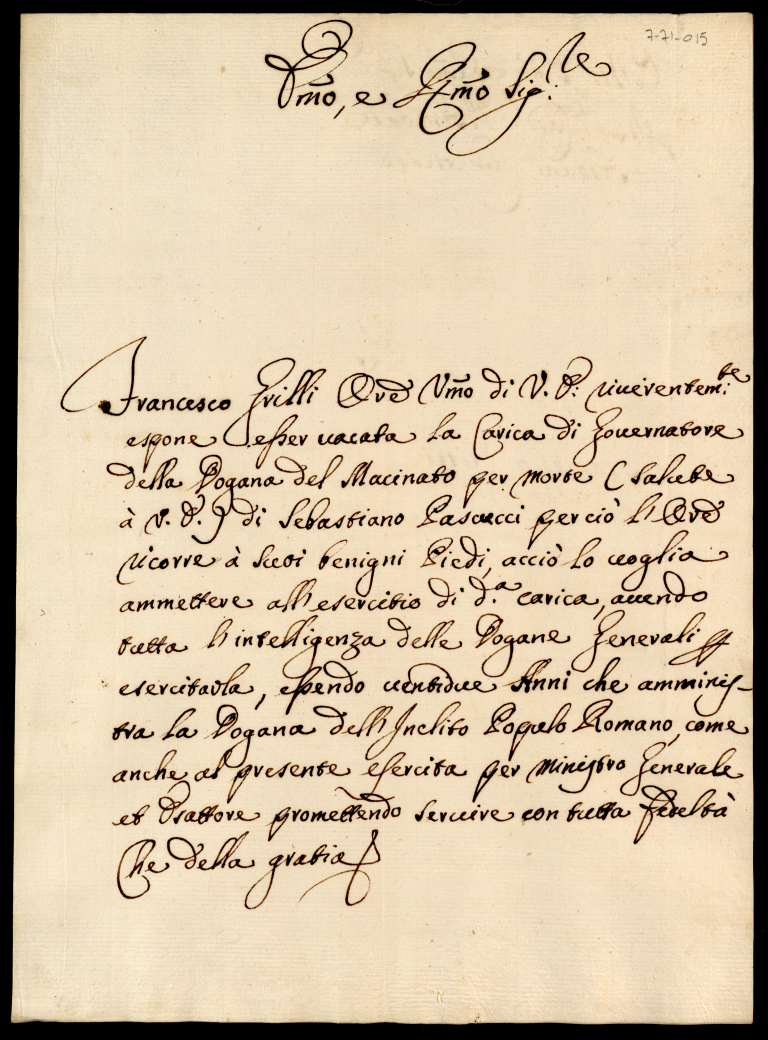 7-71-015
Emo, e Rmo Sig:re
Francesco Grilli Ore Umo di V. E: riverentem:te
espone esser vacata la Carica di Governatore
della Dogana del Macinato per morte (salute
à V. E.) di Sebastiano Pascucci perciò l'Ore
ricorre à suoi benigni Piedi, acciò lo voglia
ammettere all'esercitio di d.a carica, avendo
tutta l'intelligenza delle Dogane Generali p
esercitarla, essendo ventidue Anni che amminis-
tra la Dogana dell'Inclito Popolo Romano, come
anche al presente esercita per Ministro Generale
et Esattore promettendo servire con tutta fedeltà
Che della gratia